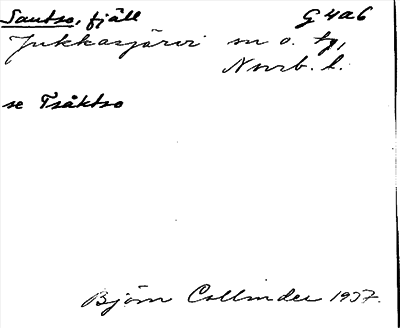 Sautso, fjäll G4a6
Jukkasjärvi sn o. tg,
Norrb. l.
se Tsåktso
Björn Collinder 1937.